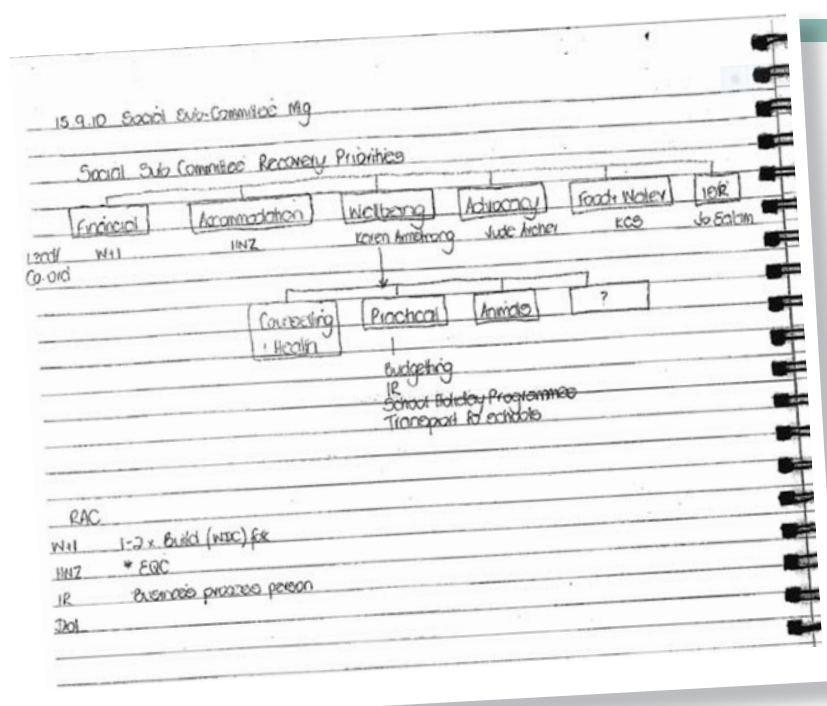 15.9.10 Social Sub-Committee Mg
Social Sub Committee Recovery Priorities
Financial Accommodation Wellbeing Advocacy Food + Water IDR
Lead/ W+I HNZ Karen Armstrong Jude Archer KCS Jo
Co.ord
Counselling Practical Animals ?
+ Health
Budgeting
IR
School Holiday Programmes
Transport for schools
RAC
W+I 1-2 x Build (WDC)
HNZ * EQC
IR Business process person
DoL